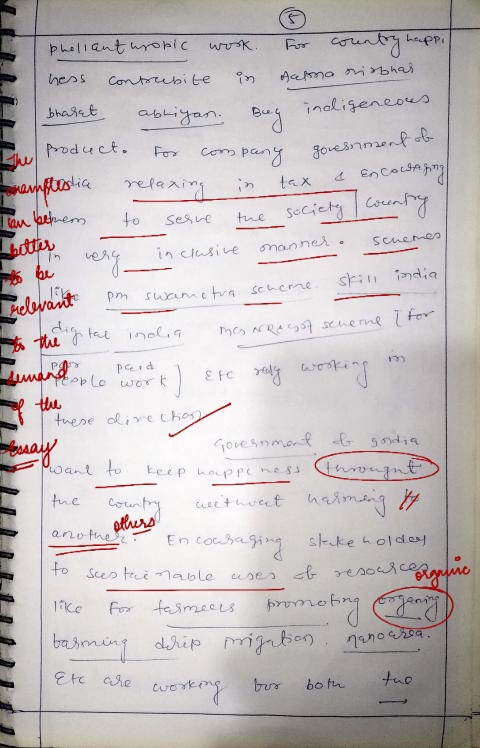 5
phelianthropic work. For country happi
ness contribite in Aatma nirbhar
bharat abhiyan. Buy indigeneous
product. For company government of
India relaxing in tax & encouraging
them to serve the society / country
in very inclusive manner. schemes
like pm swamitva scheme. skill india
digital india MGNREGA scheme [for
poor paid
people work] Etc rely working in
these direction
The
examples
can be
better
to be
relevant
to the
demand
of the
Essay
Government of India
want to keep happiness throught
the country without harming to
another. others
Encouraging stakeholder
to sustainable uses of resources
organic
like for farmers promoting organing
farming drip irrigation. nanoarea.
Etc are working for both the